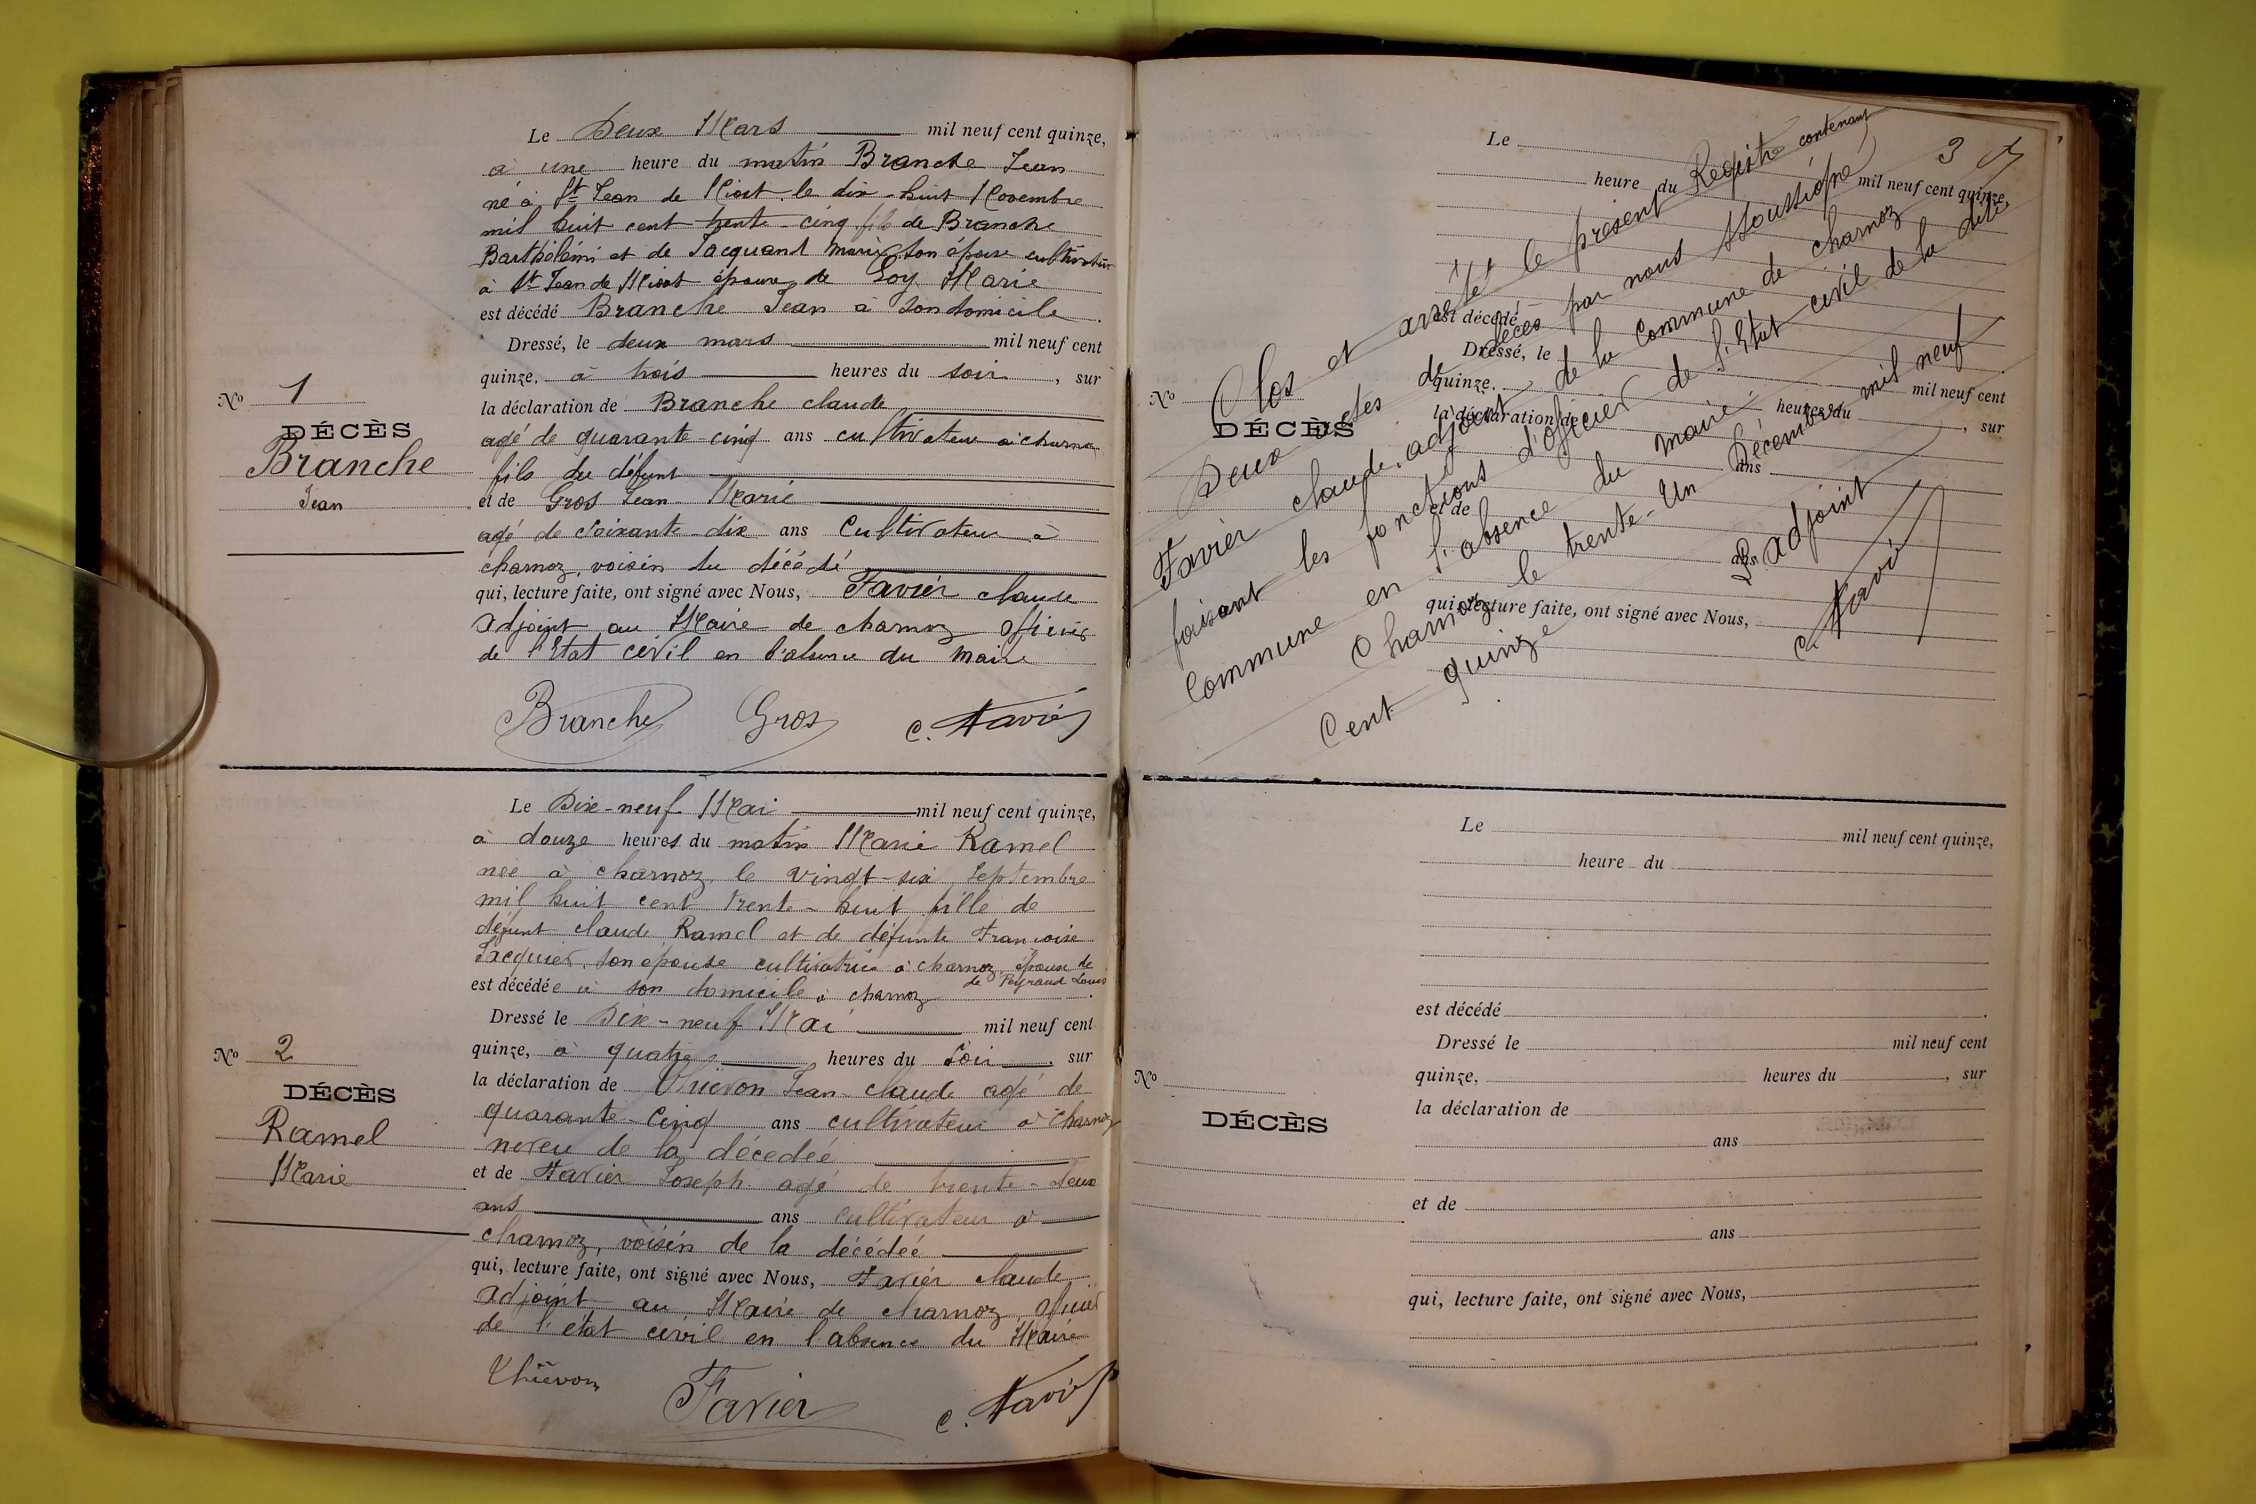 Le Deux Mars mil neuf cent quinze,
à une heure du matin Branche Jean
né à St Jean de Niost le dix-huit Novembre
mil huit cent trente-cinq fils de Branche
Barthélémi et de Jacquand Marie son épouse cultivateur
à St Jean de Niost époux de Loy Marie
est décédé Branche Jean à son domicile.
Dressé, le deux mars mil neuf cent
quinze, à trois heures du soir, sur
la déclaration de Branche claude
No 1
DÉCÈS
Branche
Jean
agé de quarante-cinq ans cultivateur à charnoz
fils du défunt
et de Gros Jean Marie
agé de soixante-dix ans cultivateur à
charnoz, voisin du décédé
qui, lecture faite, ont signé avec Nous, Favier claude
adjoint au Maire de charnoz officier
de l'Etat civil en l'absence du Maire
Branche Gros C. Favier
Le Dix-neuf Mai mil neuf cent quinze,
à douze heures du matin Marie Ramel
née à charnoz le vingt-six Septembre
mil huit cent trente-huit fille de
défunt claude Ramel et de défunte Francoise
Jacquier, son épouse cultivatrice à charnoz, épouse de
de Peyraud Louis
est décédée à son domicile à charnoz.
Dressé le Dix-neuf Mai mil neuf cent
quinze, à quatre heures du soir, sur
la déclaration de Thiévon Jean claude agé de
No 2
DÉCÈS
Ramel
Marie
quarante-cinq ans cultivateur à charnoz
neveu de la décedéé
et de Favier Joseph agé de trente-deux
ans ans cultivateur à
charnoz, voisin de la décédéé
qui, lecture faite, ont signé avec Nous, Favier claude
adjoint au Maire de charnoz, officier
de l'état civil en l'absence du Maire
Thiévon Favier C. Favier
3
Clos et arrêté le présent Registre contenant
Deux actes de décès par nous Soussigné
Favier claude, adjoint de la commune de charnoz
faisant les fonctions d'officier de l'Etat civil de la dite
commune en l'absence du maire.
Charnoz le trente-un Décembre mil neuf
cent quinze
L'adjoint
C. Favier
Le mil neuf cent quinze,
heure du
est décédé
Dressé, le mil neuf cent
quinze, heures du, sur
la déclaration de
No
DÉCÈS
ans
et de
ans
qui, lecture faite, ont signé avec Nous,
Le mil neuf cent quinze,
heure du
est décédé.
Dressé le mil neuf cent
quinze, heures du, sur
No
DÉCÈS
la déclaration de
ans
et de
ans
qui, lecture faite, ont signé avec Nous,